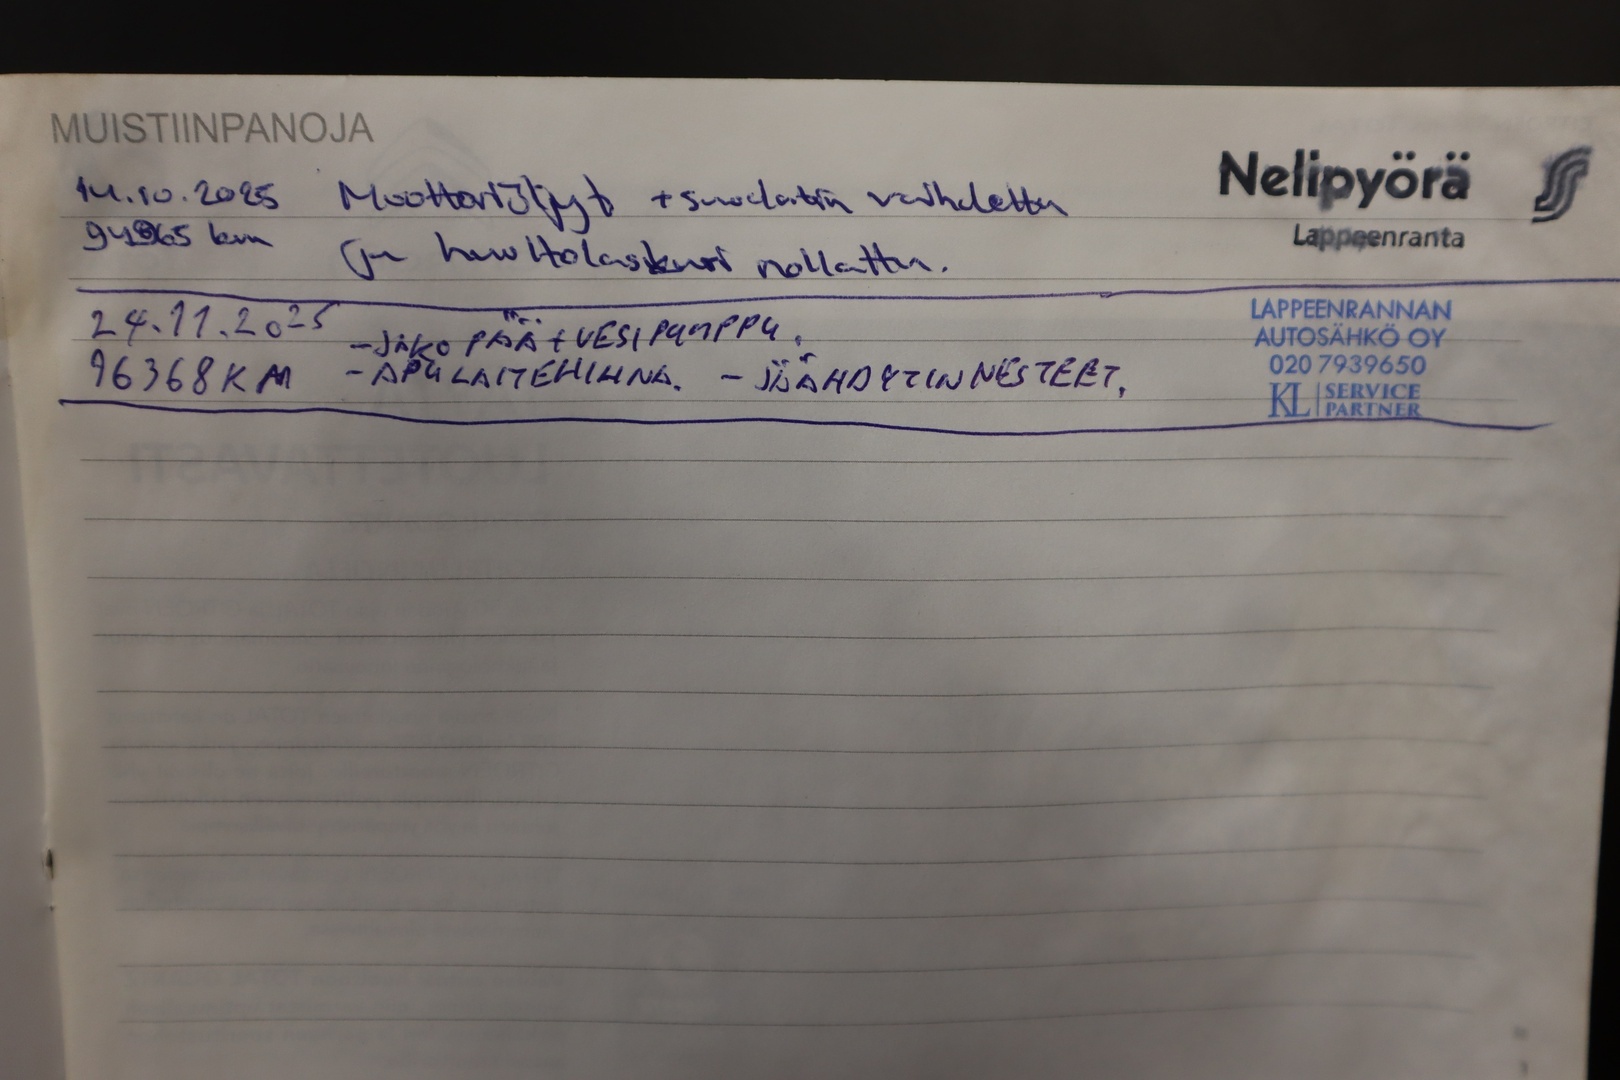 MUISTIINPANOJA
14.10.2025 Moottoriöljyt + suodatin vaihdettu
Nelipyörä
Lappeenranta
km ja huoltolaskuri nollattu.
24.11.2025 -JAKOPÄÄ + VESIPUMPPU.
96368 KM -APULAITEHIHNA. -JÄÄHDYTINNESTEET.
LAPPEENRANNAN
AUTOSÄHKÖ OY
020 7939650
KL SERVICE
PARTNER
LUOTETTAVASTI